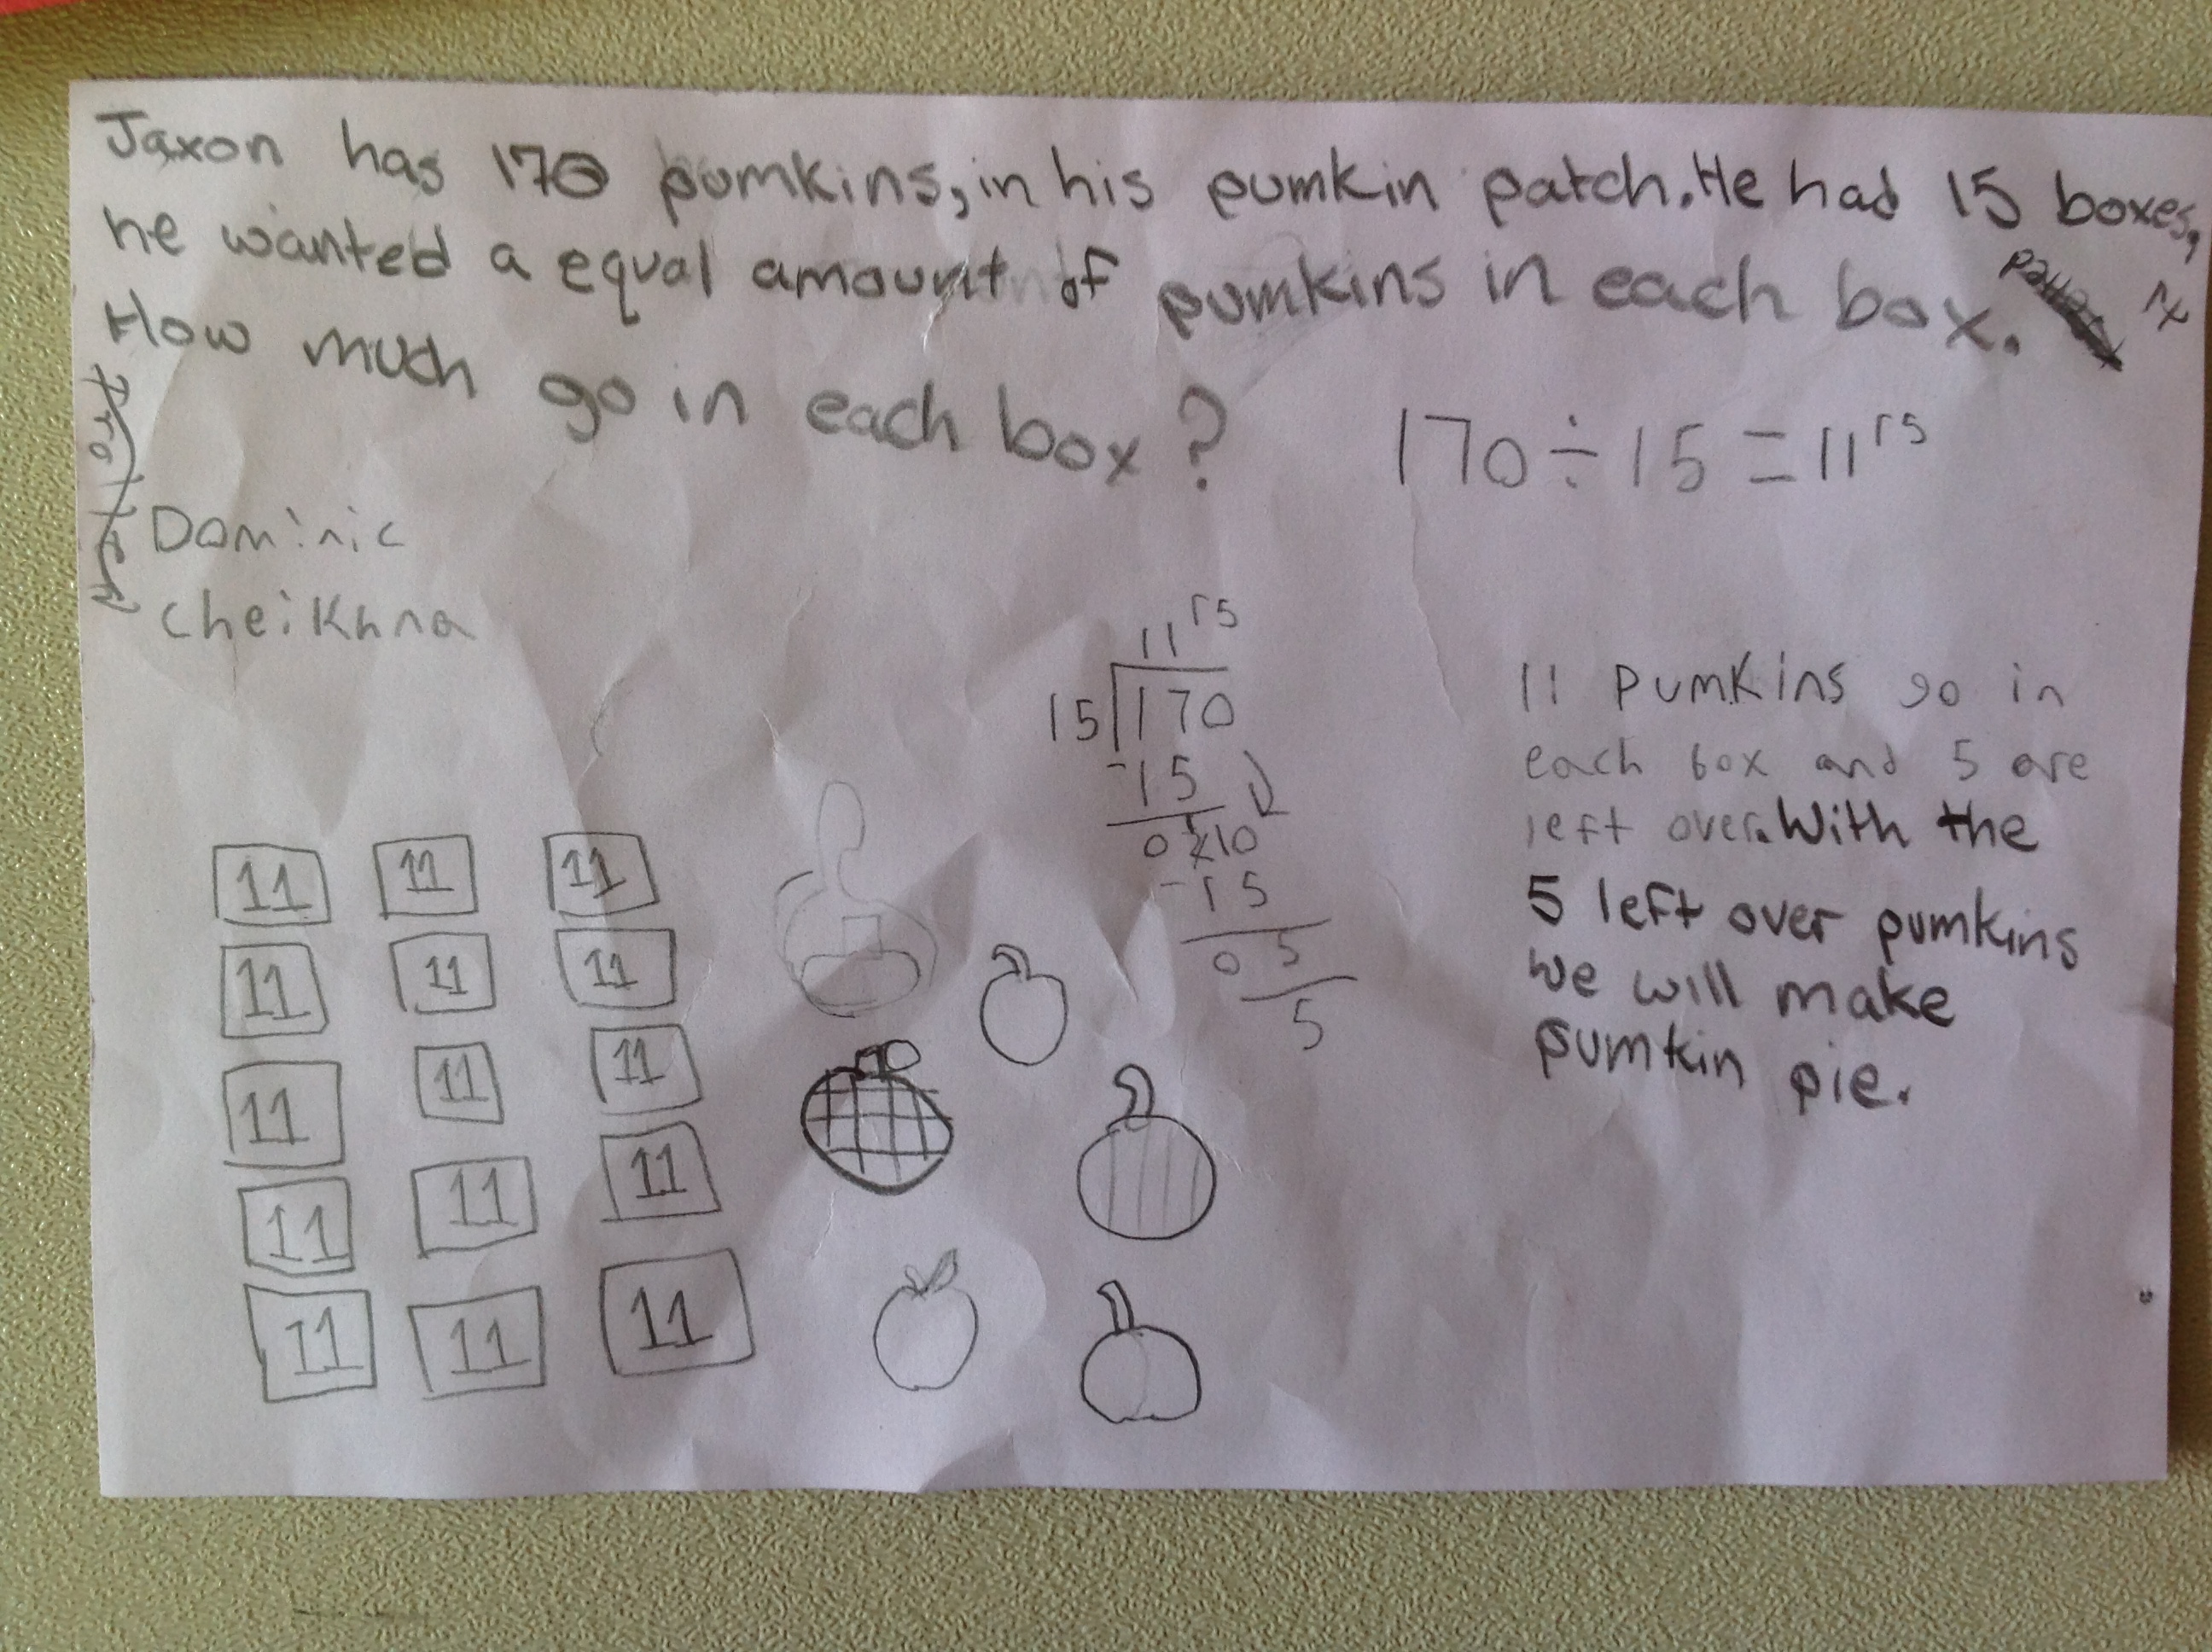 Jaxon has 170 pumkins, in his pumkin patch. He had 15 boxes,
he wanted a equal amount of pumkins in each box.
How much go in each box?
170 ÷ 15 = 11 r5
Dominic
Cheikhna
11 r5
15 170
- 15
0 2 10
- 15
0 5
5
11 pumkins go in
each box and 5 are
left over. With the
5 left over pumkins
we will make
pumkin pie.
11 11 11
11 11 11
11 11 11
11 11 11
11 11 11